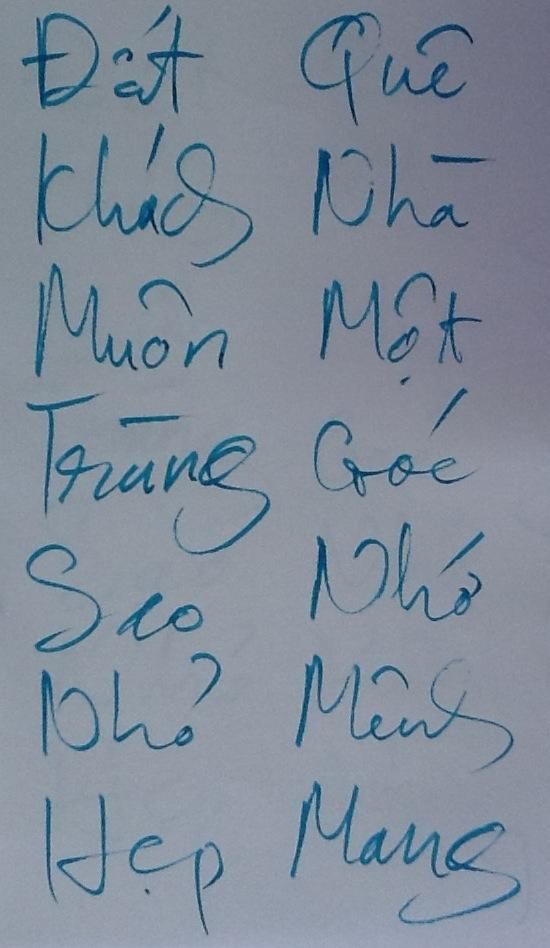 Đất
Khách
Muôn
Trùng
Sao
Nhỏ
Hẹp
Quê
Nhà
Một
Góc
Nhớ
Mênh
Mang